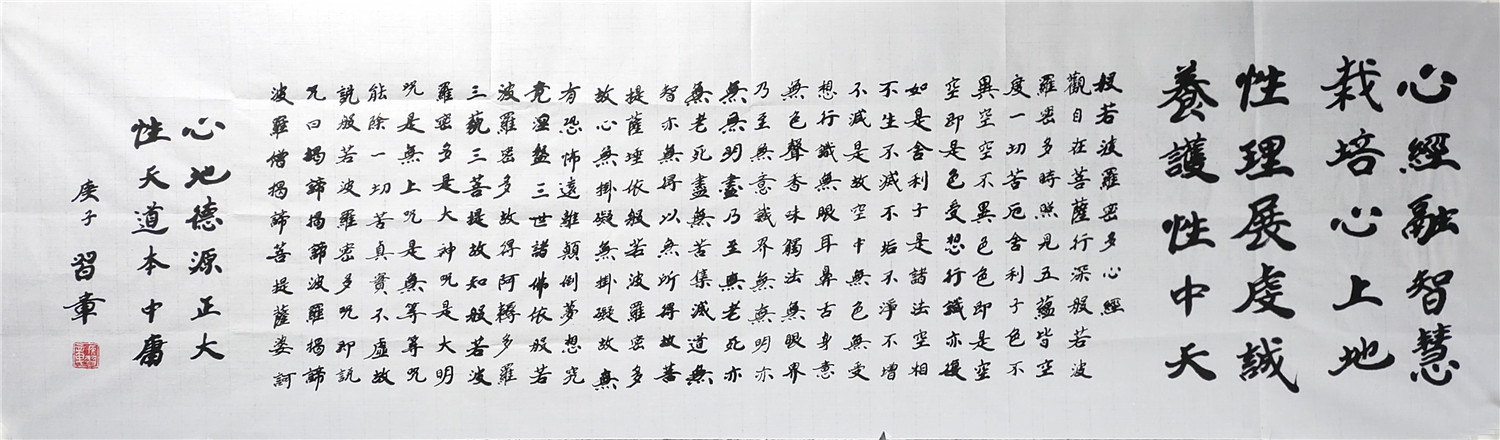 心經融智慧
栽培心上地
性理展虔誠
養護性中天
般若波羅密多心經
觀自在菩薩行深般若波
羅密多時照見五蘊皆空
度一切苦厄舍利子色不
異空空不異色色即是空
空即是色受想行識亦復
如是舍利子是諸法空相
不生不滅不垢不淨不增
不減是故空中無色無受
想行識無眼耳鼻舌身意
無色聲香味觸法無眼界
乃至無意識界無無明亦
無無明盡乃至無老死亦
無老死盡無苦集滅道無
智亦無得以無所得故菩
提薩埵依般若波羅密多
故心無掛礙無掛礙故無
有恐怖遠離顛倒夢想究
竟涅盤三世諸佛依般若
波羅密多故得阿耨多羅
三藐三菩提故知般若波
羅密多是大神咒是大明
咒是無上咒是無等等咒
能除一切苦真實不虛故
說般若波羅密多咒即說
咒曰揭諦揭諦波羅揭諦
波羅僧揭諦菩提薩婆訶
心地德源正大
性天道本中庸
庚子習章